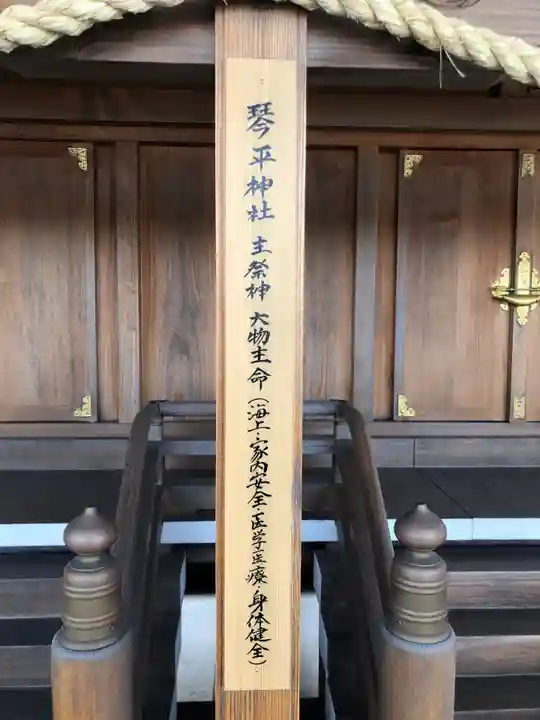 琴平神社 主祭神 大物主命(海上・家内安全・医学医療・身体健全)